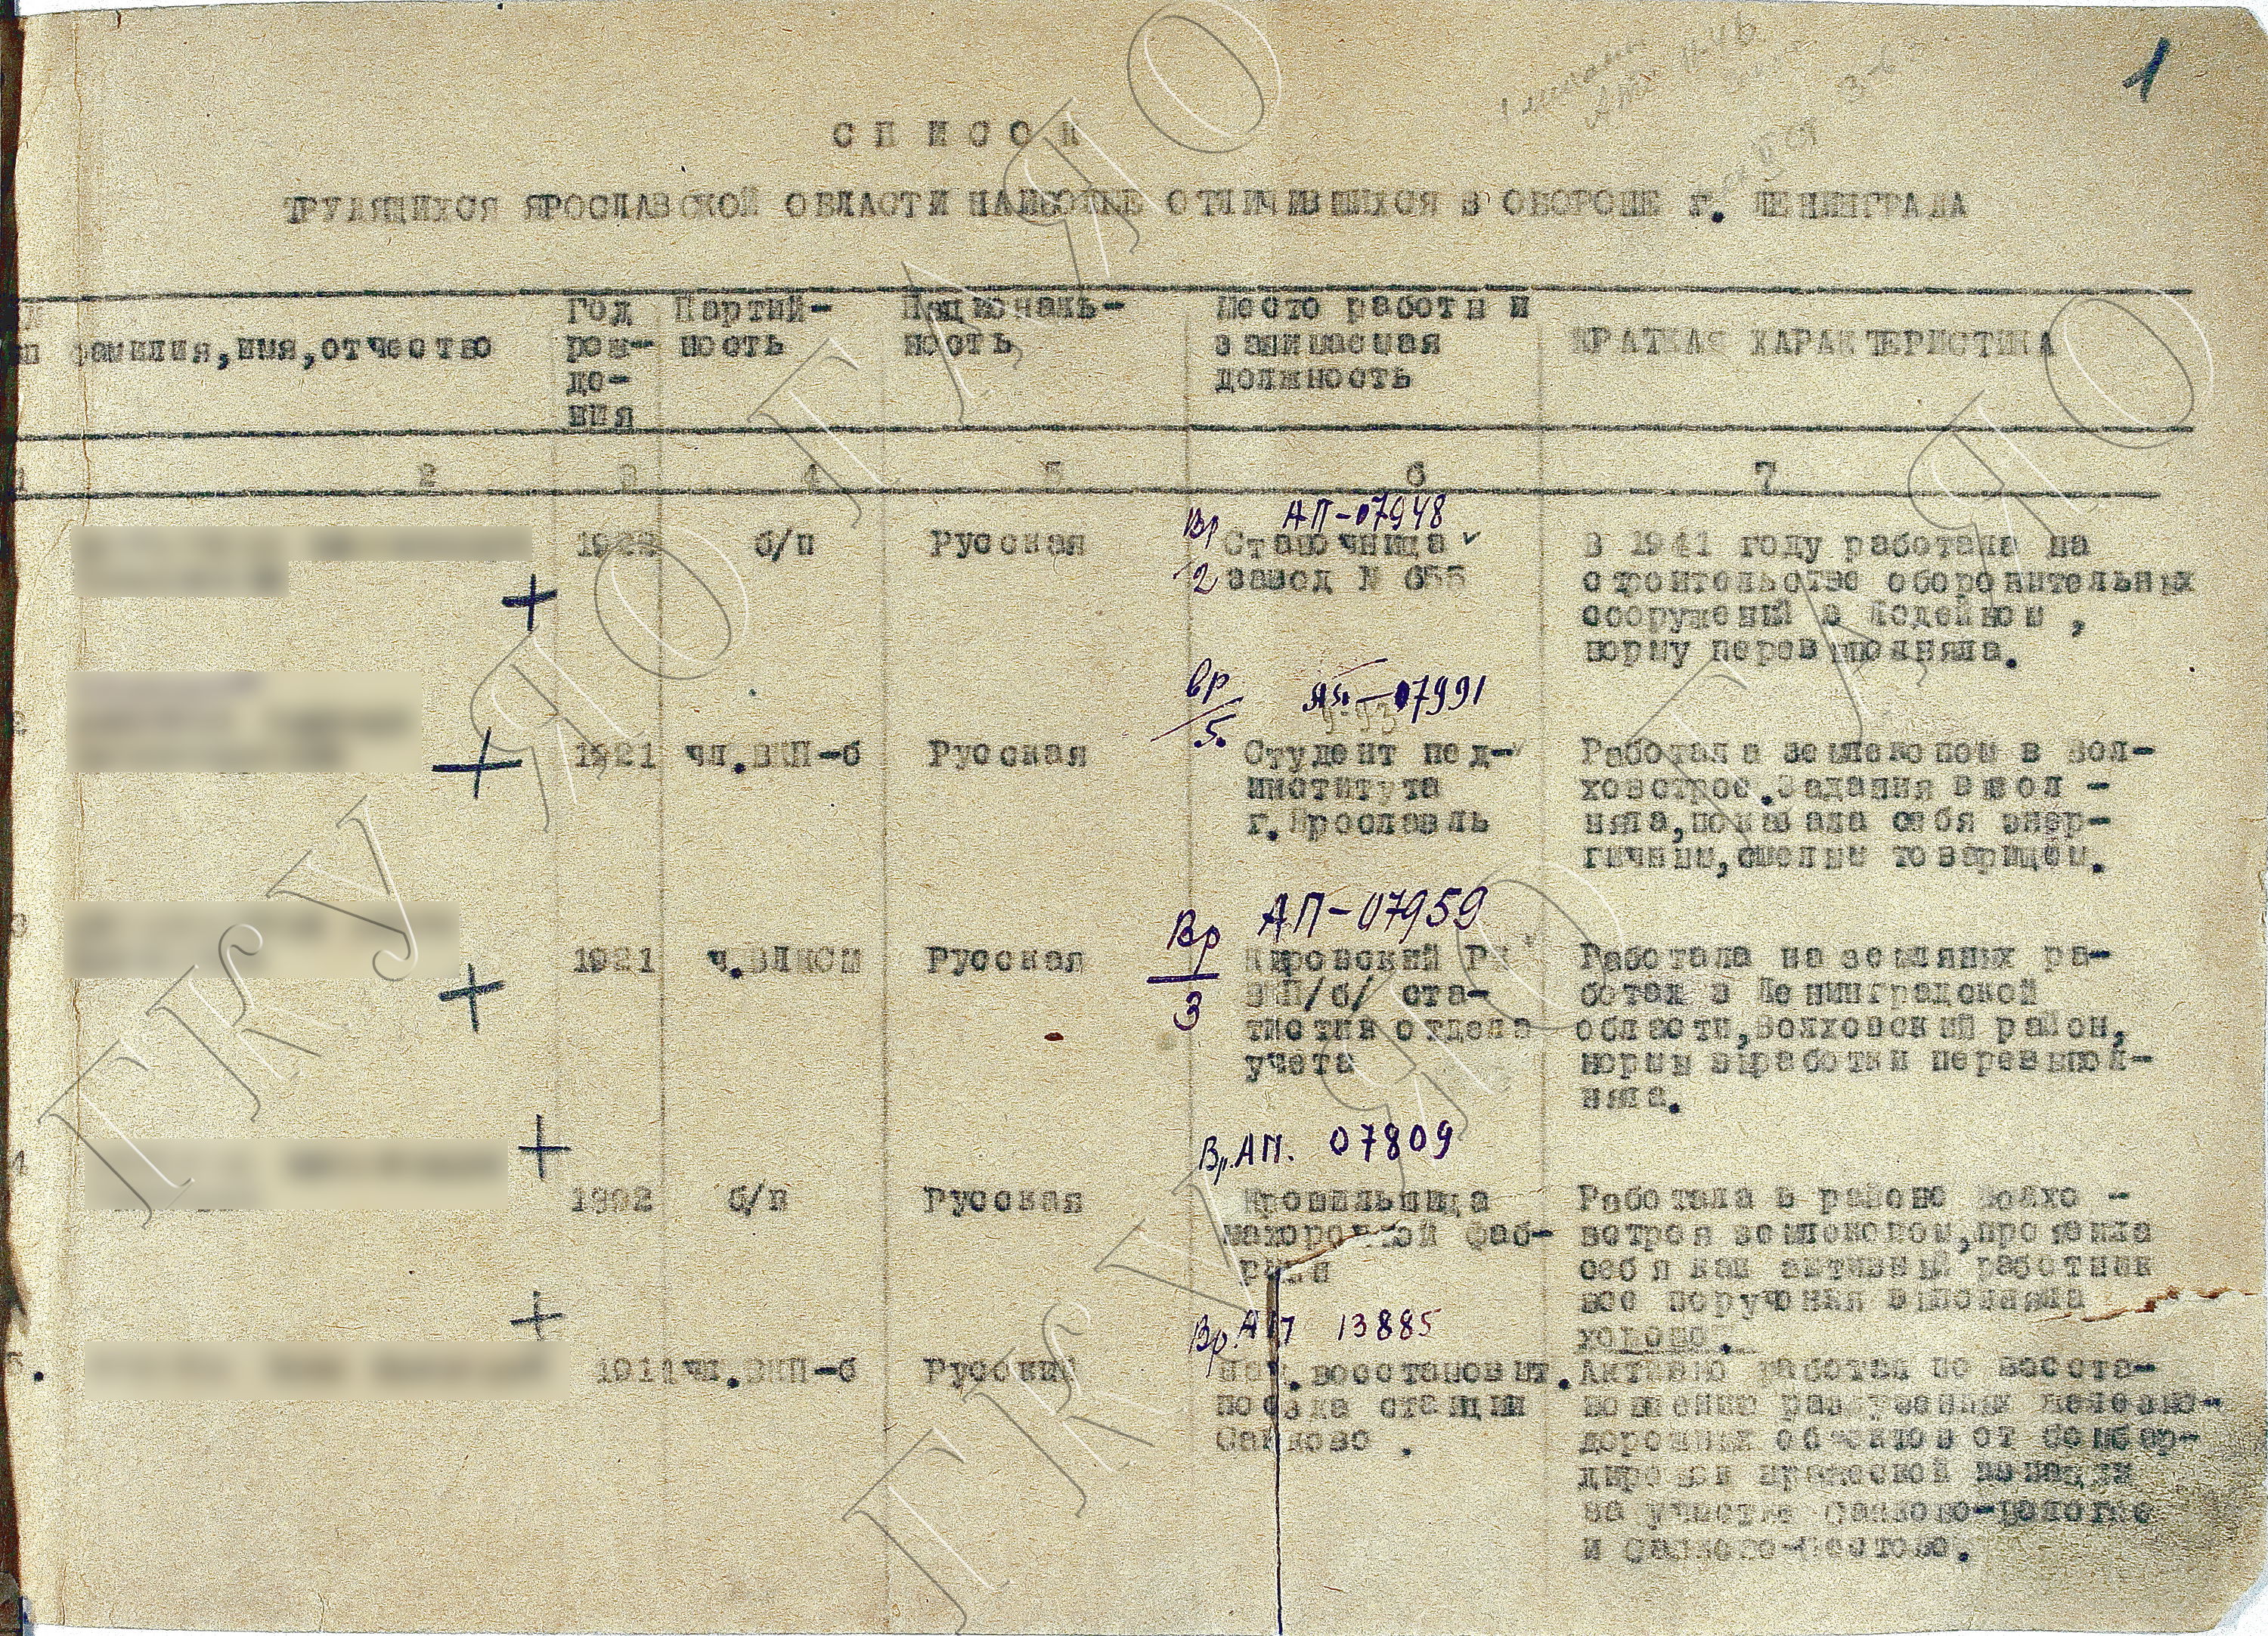 1
С П И С О К
ТРУДЯЩИХСЯ ЯРОСЛАВСКОЙ ОБЛАСТИ НАИБОЛЕЕ ОТЛИЧИВШИХСЯ В ОБОРОНЕ г. ЛЕНИНГРАДА
фамилия,имя,отчество
Год
рож-
де-
ния
Партий-
ность
Националь-
ность
Место работы и
занимаемая
должность
КРАТКАЯ ХАРАКТЕРИСТИКА
1 2 3 4 5 6 7
Вр АП-07948
2
б/п Русская
Станочница
завод N 655
В 1941 году работала на
строительстве оборонительных
сооружений в Лодейном ,
норму перевыполняла.
2
Вр 07991
5.
1921 чл.ВКП-б Русская
Студент пед-
института
г.Ярославль
Работала землекопом в Вол-
ховстрое.Задания выпол -
няла,показала себя энер-
гичным,смелым товарищем.
3
Вр АП-07959
3
1921 ч.ВЛКСМ Русская
Кировский РК
ВКП/б/ ста-
тистик отдела
учета
Работала на земляных ра-
ботах в Ленинградской
области,Волховский район,
нормы выработки перевыпол-
няла.
4
Вр.АП. 07809
б/п Русская
Крошильщица
махорочной фаб-
рики
Работала в районе Волхо -
встроя землекопом,проявила
себя как активный работник
все поручения выполняла
хорошо.
5.
Вр.АП 13885
1911 чл.ВКП-б Русский
Нач.восстановит.
поезда станции
Сонково .
Активно работал по восста-
новлению разрушенных железно-
дорожных объектов от бомбар-
дировок вражеской авиации
на участке Сонково-Вологое
и Сонково-
ГКУ ЯО ГАЯО
ГКУ ЯО ГАЯО